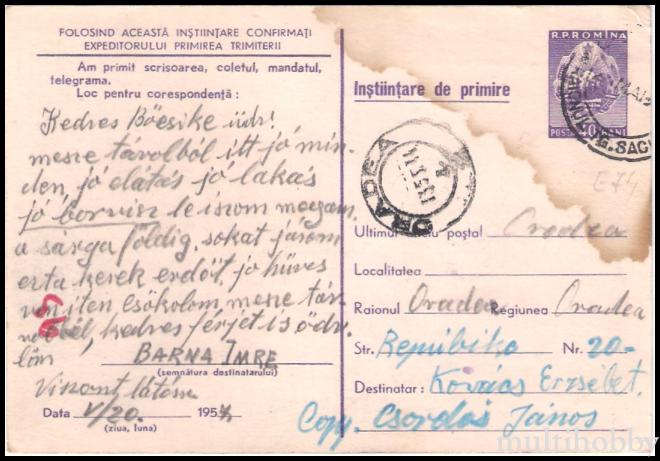 FOLOSIND ACEASTĂ INȘTIINȚARE CONFIRMAȚI
EXPEDITORULUI PRIMIREA TRIMITERII
Am primit scrisoarea, coletul, mandatul,
telegrama.
Loc pentru corespondență :
Kedves Böesike üdv!
messze távolból itt jó min-
den, jó elátás jó lakás
jó borvisz le iszom magam
a sárga földig, sokat járom
erta kerek erdőit, jo hüves
iten Esókolom, messze táv
kedves férjét is üdv.
löm BARNA IMRE
(semnătura destinatarului)
Viszont látásra
Data V/20. 1957
(ziua, luna)
R.P.ROMÎNA
POSTA 40 BANI
Inștiințare de primire
ORADEA
E74
Ultimul oficiu poștal Oradea
Localitatea
Raionul Oradea Regiunea Oradea
Str. Repúbika Nr. 20-
Destinatar: Kovács Erzsébet
Csordás János
multihobby